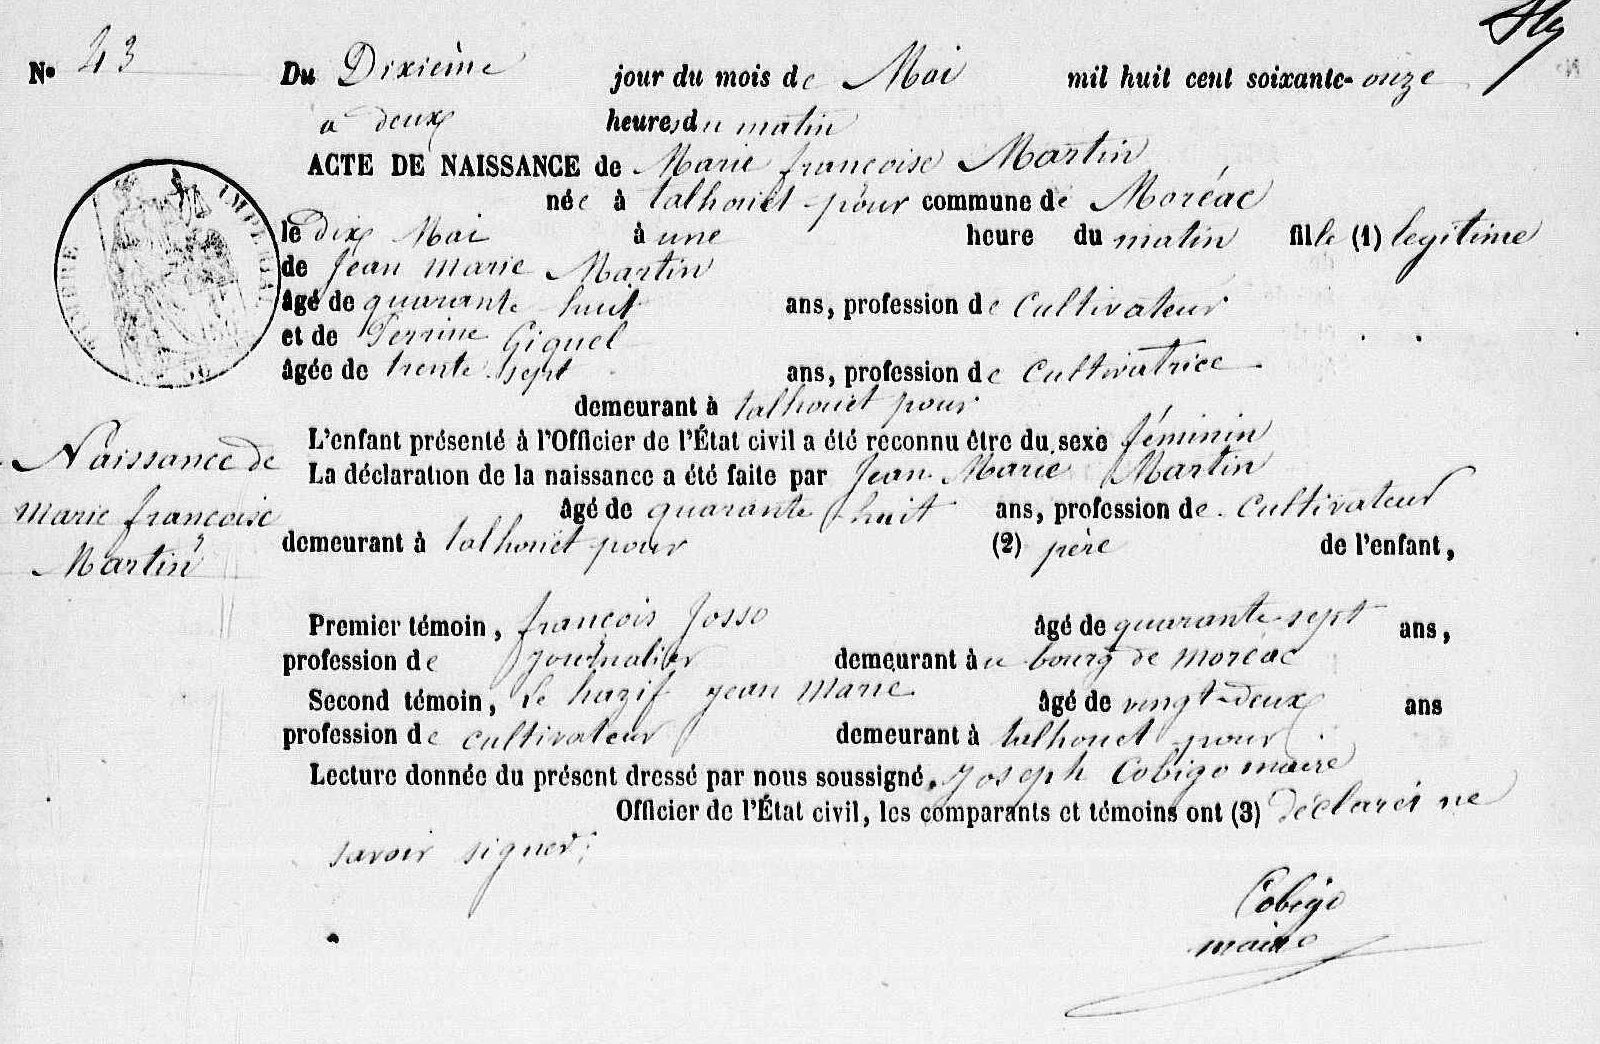 N° 43
Du Dixième jour du mois de Mai mil huit cent soixante-onze
a deux heures du matin
ACTE DE NAISSANCE de Marie françoise Martin
née à talhouët pour commune de Moréac
le dix Mai à une heure du matin fille (1) legitime
de Jean marie Martin
âgé de quarante huit ans, profession de cultivateur
et de Perrine Giquel
âgée de trente sept ans, profession de cultivatrice
demeurant à talhouët pour
L'enfant présenté à l'Officier de l'État civil a été reconnu être du sexe féminin
La déclaration de la naissance a été faite par Jean Marie Martin
âgé de quarante huit ans, profession de cultivateur
demeurant à talhouët pour (2) père de l'enfant,
Naissance de
marie françoise
Martin
Premier témoin, françois Josso âgé de quarante-sept ans,
profession de journalier demeurant au bourg de moréac
Second témoin, Le hazif jean marie âgé de vingt-deux ans
profession de cultivateur demeurant à talhouet pour
Lecture donnée du présent dressé par nous soussigné, joseph Cobigo maire
Officier de l'État civil, les comparants et témoins ont (3) déclarés ne
savoir signer.
Cobigo
maire
TIMBRE IMPERIAL